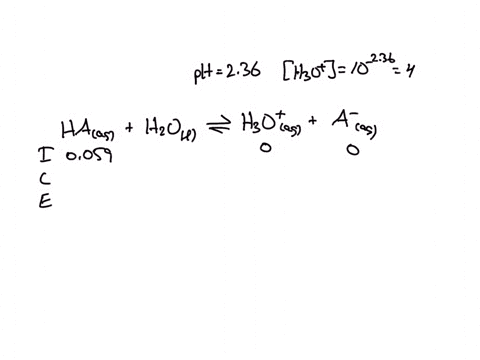 pH = 2.36 [H₃O⁺] = 10^-2.36 = 4
HA(aq) + H₂O(l) ⇌ H₃O⁺(aq) + A⁻(aq)
I 0.059 0 0
C
E